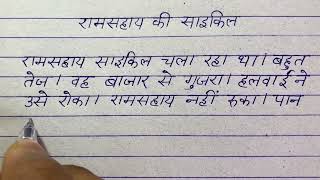 रामसहाय की साइकिल
रामसहाय साइकिल चला रहा था। बहुत
तेज। वह बाजार से गुजरा। हलवाई ने
उसे रोका। रामसहाय नहीं रुका। पान